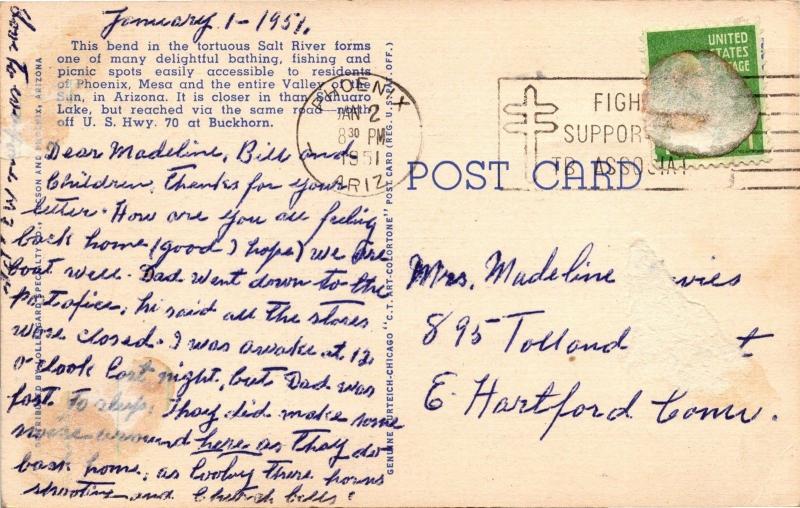 January 1-1951.
This bend in the tortuous Salt River forms
one of many delightful bathing, fishing and
picnic spots easily accessible to residents
of Phoenix, Mesa and the entire Valley of the
Sun, in Arizona. It is closer in than Sahuaro
Lake, but reached via the same road north
off U. S. Hwy. 70 at Buckhorn.
Dear Madeline, Bill and
Children, Thanks for your
letter. How are you all feeling
back home (good I hope) we are
boat well. Dad went down to the
post ofice, he said all the stores
were closed. I was awake at 12
o'clook last night, but Dad was
fast To sleep. They did make some
noise around here as they do
back home, as Blowing there horns
shooting and Church bells!
PHOENIX
JAN 2
8 30 PM
1951
ARIZ
FIGH
SUPPOR
TB ASSOCIAT
UNITED
STATES
AGE
POST CARD
Mrs. Madeline vies
895 Tolland t
E. Hartford Conn.
GENUINE CURTEICH-CHICAGO "C.T. ART-COLORTONE" POST CARD (REG. U.S. PAT. OFF.)